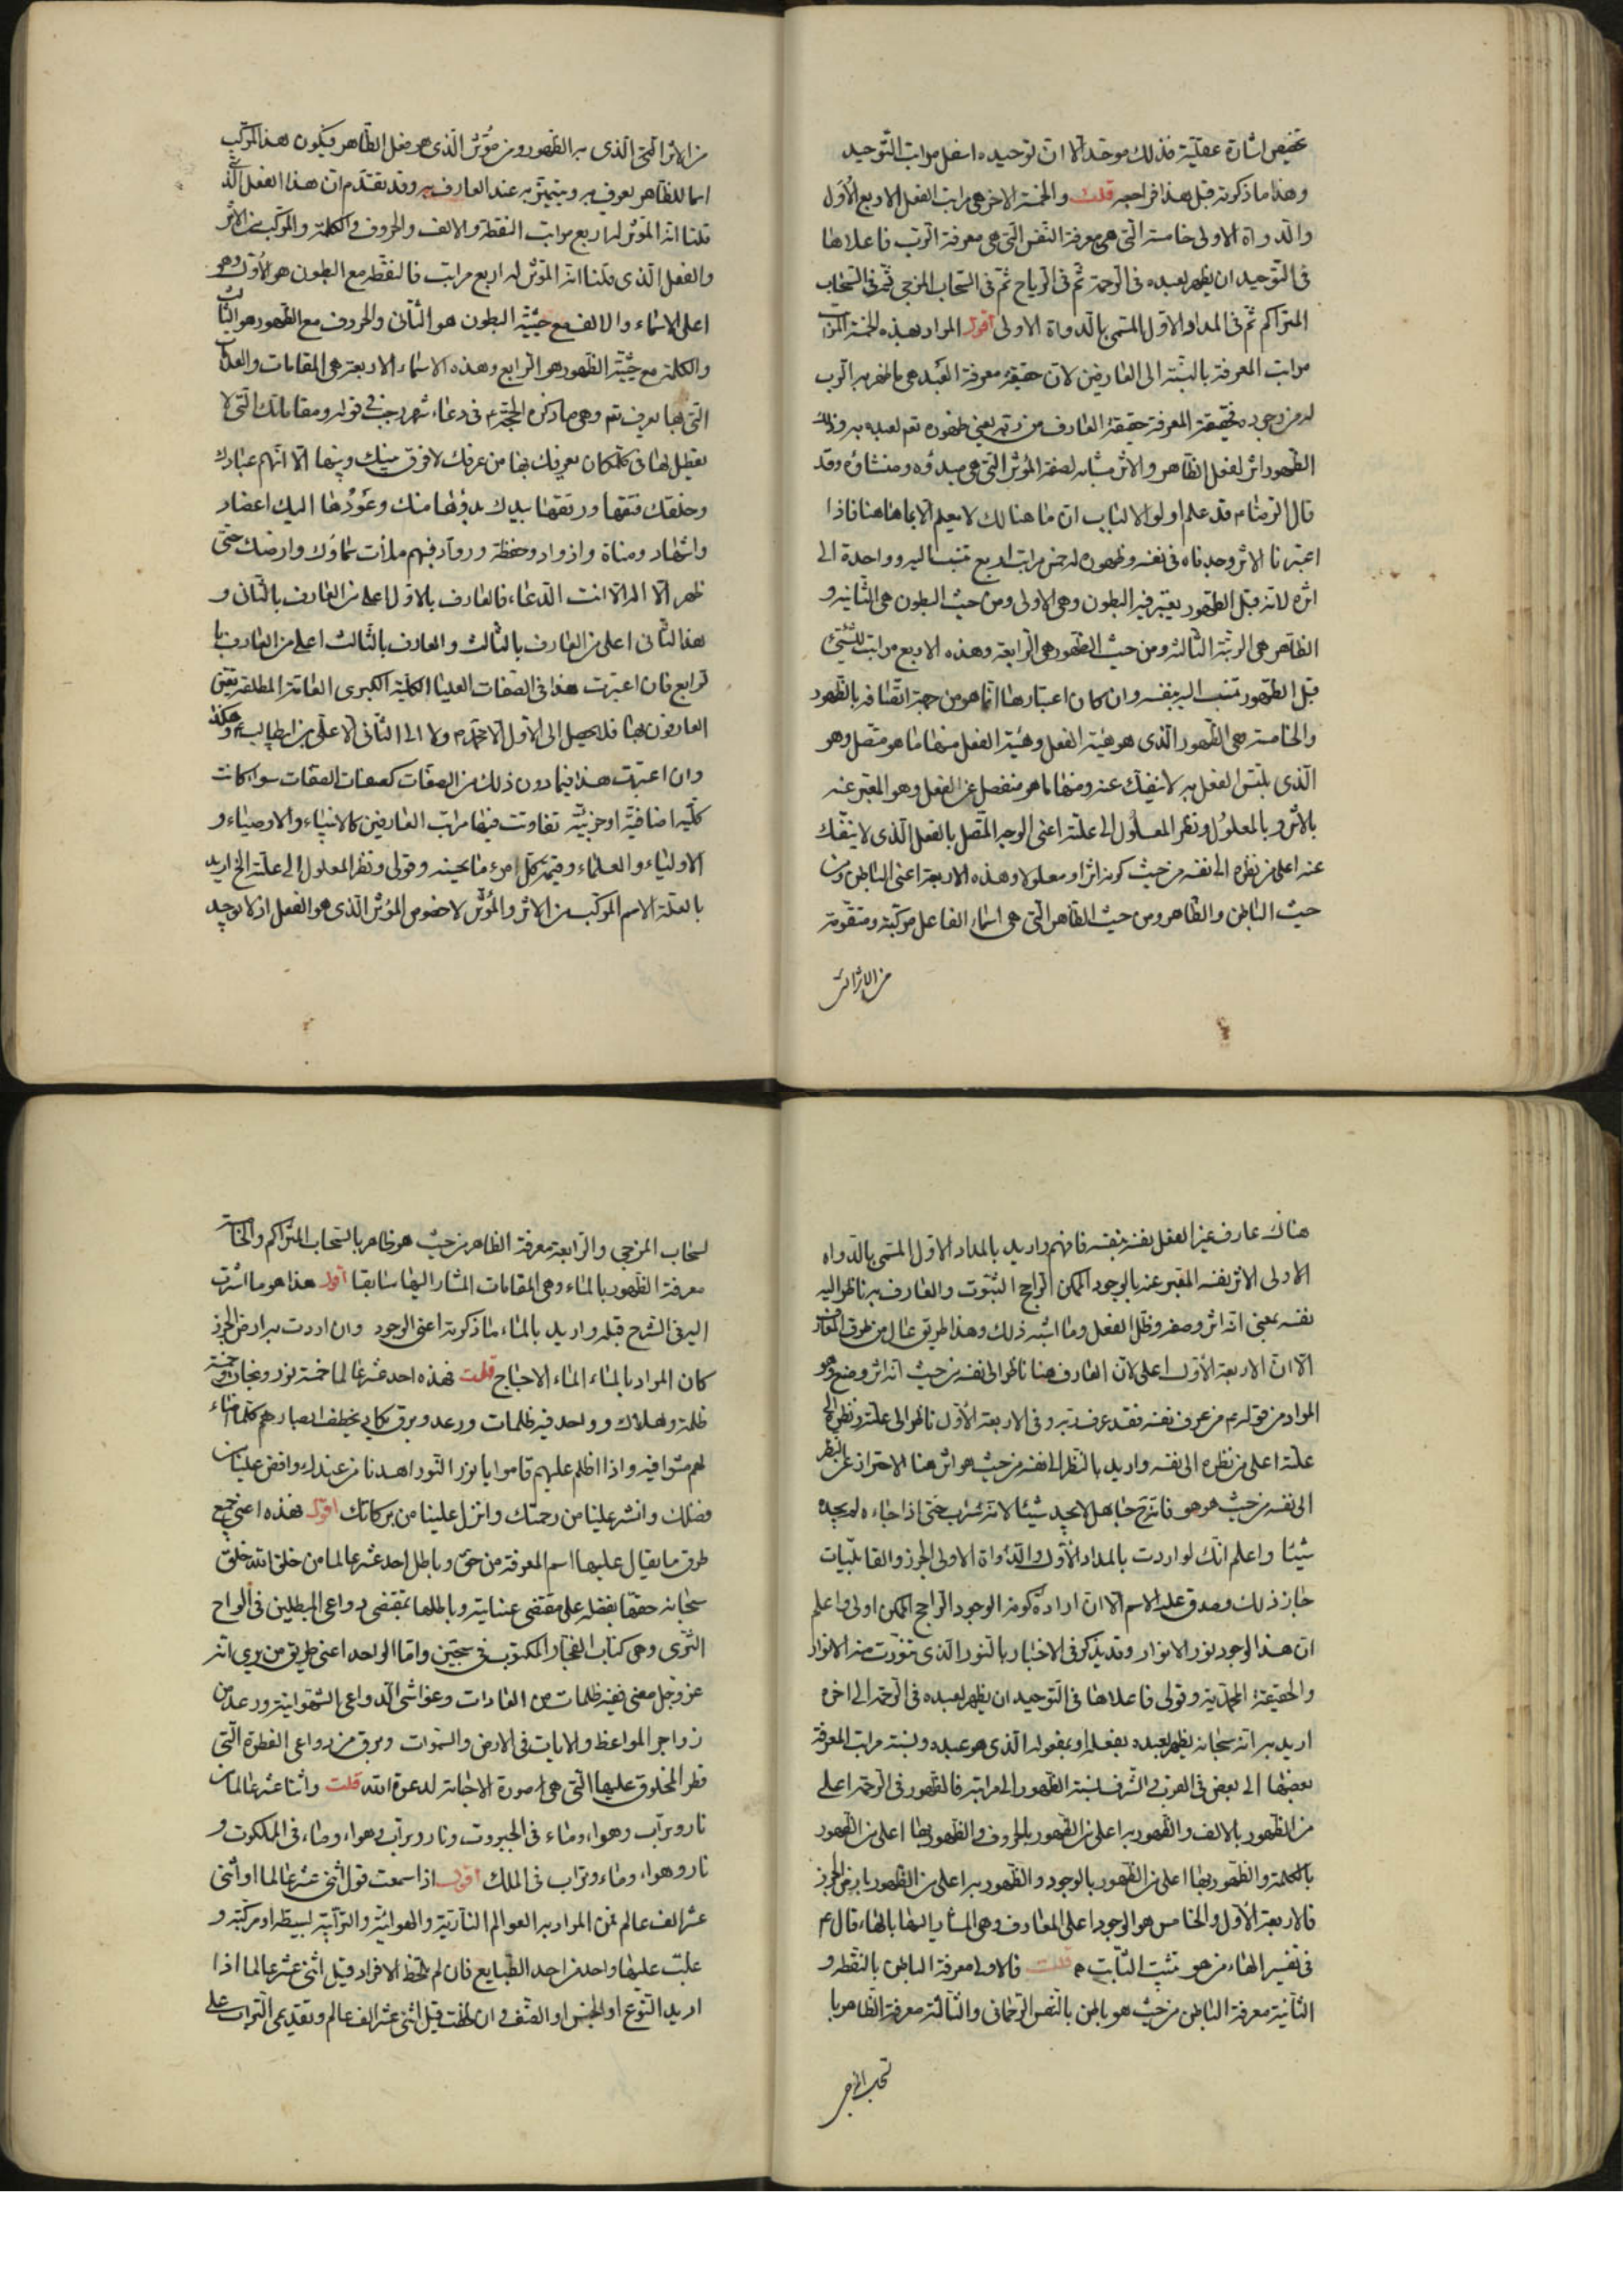 تخصيص اشارة عقلية فذلك موحد الا ان توحيده اسفل مراتب التوحيد
وهذا ما ذكرته قبل هذا فراجعه قلت والخمسة الاخر هى مراتب الفعل الاربع الاول
والدواة الاولى خامسة التى هى معرفة النفس التى هى معرفة الرب فاعلاها
فى التوحيد ان يظهر لعبده فى الرحمة ثم فى الرياح ثم فى السحاب المزجى ثم فى السحاب
المتراكم ثم فى المداد الاول المسمى بالدواة الاولى اقول المراد بهذه الخمسة المراتب
مراتب المعرفة بالنسبة الى العارفين لان حقيقة معرفة العبد هى ما ظهر به الرب
له من وجوده فحقيقة المعرفة حقيقة العارف من ربه يعنى ظهوره تعم لعبده به وذلك
الظهور اثر لفعل الظاهر والاثر مشابه لصفة المؤثر التى هى مبدؤه ومنشاؤه وقد
قال الرضا ع قد علم اولو الالباب ان ما هنالك لا يعلم الا بما هاهنا فاذا
اعتبرنا الاثر وجدناه فى نفسه وظهوره له خمس مراتب اربع تنسب اليه وواحدة الى
اثره لانه قبل الظهور يعتبر فيه البطون وهى الاولى ومن حيث البطون هى الثانية و
الظاهر هى الرتبة الثالثة ومن حيث الظهور هى الرابعة وهذه الاربع مراتب للشئ
قبل الظهور تنسب اليه بنفسه وان كان اعتبارها انما هو من جهة اتصافه بالظهور
والخامسة هى الظهور الذى هو هيئة الفعل وهيئة الفعل منها ما هو متصل وهو
الذى يلتبس الفعل به لا ينفك عنه ومنها ما هو منفصل عن الفعل وهو المعبر عنه
بالاثر وبالمعلول ونظر المعلول الى علته اعنى الوجه المتصل بالفعل الذى لا ينفك
عنه اعلى من نظره الى نفسه من حيث كونه اثرا ومعلولا وهذه الاربعة اعنى الباطن ومن
حيث الباطن والظاهر ومن حيث الظاهر التى هى اسماء الفاعل مركبة ومتقومة
من الاثر التى
من الاثر التى الذى به الظهور ومن مؤثر الذى هو فعل الظاهر فيكون هذا المركب
اسما للظاهر يعرف به ويتميز به عند العارف به وقد تقدم ان هذا الفعل الذى
قلنا انه المؤثر له اربع مراتب النقطة والالف والحروف والكلمة والمركب من الاثر
والفعل الذى قلنا انه المؤثر له اربع مراتب فالنقطة مع البطون هو الاول وهو
اعلى الاسماء والالف مع حيثية البطون هو الثانى والحروف مع الظهور هو الثالث
والكلمة مع حيثية الظهور هو الرابع وهذه الاسماء الاربعة هى المقامات والعلامات
التى بها يعرف تعم وهى ما ذكره الحجة ع فى دعاء شهر رجب فى قوله ومقاماتك التى لا
تعطيل لها فى كل مكان يعرفك بها من عرفك لا فرق بينك وبينها الا انهم عبادك
وخلقك فتقها ورتقها بيدك بدؤها منك وعودها اليك اعضاد
واشهاد ومناة واذواد وحفظة ورواد فبهم ملأت سماؤك وارضك حتى
ظهر ان لا اله الا انت الدعاء فالعارف بالاول اعلى من العارف بالثانى و
هذا الثانى اعلى من العارف بالثالث والعارف بالثالث اعلى من العارف با
لرابع فان اعتبرت هذا فى الصفات العليا الكلية الكبرى العامة المطلقة
العارفون بها فلا يصل الى الاول الا محمد ص ولا الى الثانى الا على بن ابيطالب ع وهكذا
وان اعتبرت هذا فيما دون ذلك من الصفات كصفات الصفات سواء كانت
كلية اضافية او جزئية تفاوتت فيها مراتب العارفين كالانبياء والاوصياء و
الاولياء والعلماء وقيمة كل امرئ ما يحسنه وقولى ونظر المعلول الى علته الخ اريد
بالعلة الاسم المركب من الاثر والمؤثر لا خصوص المؤثر الذى هو الفعل اذ لا يوجد
هناك عارف غير الفعل نفسه بنفسه فافهم واريد بالمداد الاول المسمى بالدواة
الاولى الاثر نفسه المعبر عنه بالوجود الممكن الراجح الثبوت والعارف به ناظر اليه
نفسه بمعنى انه اثر وصفة وظل الفعل وما اشبه ذلك وهذا طريق عال من طرق المعارف
الا ان الاربعة الاول اعلى لان العارف هنا ناظر الى نفسه من حيث انه اثر وصنع وهو
المراد من قوله ع من عرف نفسه فقد عرف ربه وفى الاربعة الاول ناظر الى علته ونظره الى
علته اعلى من نظره الى نفسه واريد بالنظر الى نفسه من حيث هو اثر هنا الاحتراز عن النظر
الى نفسه من حيث هو هو فانه ح جاهل لا يجد شيئا لانه سراب حتى اذا جاءه لم يجده
شيئا واعلم انك لو اردت بالمداد الاول والدواة الاولى الجرز والقابليات
جاز ذلك وصدق عليه الاسم الا ان ارادة كونه الوجود الراجح الممكن اولى واعلم
ان هذا الوجود نور الانوار وقد يذكر فى الاخبار بالنور الذى تنورت منه الانوار
والحقيقة المحمدية وقولى فاعلاها فى التوحيد ان يظهر لعبده فى الرحمة الى اخره
اريد به انه سبحانه يظهر لعبده بفعله او بمفعوله الذى هو عبده ونسبة مراتب المعرفة
بعضها الى بعض فى القرب والشرف نسبة الظهور الى مراتبه فالظهور فى الرحمة اعلى
من الظهور بالالف والظهور به اعلى من الظهور بالحروف والظهور بها اعلى من الظهور
بالكلمة والظهور بها اعلى من الظهور بالوجود والظهور به اعلى من الظهور بارض الجرز
فالاربعة الاول والخامس هو الوجود اعلى المعارف وهى المشار اليها بالهاء قال ع
فى تفسير الهاء من هو تثبيت الثابت قلت فالاولى معرفة الباطن بالنقطة و
الثانية معرفة الباطن من حيث هو باطن بالنفس الرحمانى والثالثة معرفة الظاهر با
لسحاب المزجى
لسحاب المزجى والرابعة معرفة الظاهر من حيث هو ظاهر بالسحاب المتراكم والخامسة
معرفة الظهور بالماء وهى المقامات المشار اليها سابقا اقول هذا هو ما اشرت
اليه فى الشرح قبله واريد بالماء ما ذكرته اعنى الوجود وان اردت به ارض الجرز
كان المراد بالماء الماء الاجاج قلت فهذه احد عشر عالما خمسة نور ونجاة وخمسة
ظلمة وهلاك وواحد فيه ظلمات ورعد وبرق يكاد يخطف ابصارهم كلما اضاء
لهم مشوا فيه واذا اظلم عليهم قاموا يا نور النور اهدنا من عندك وافض علينا من
فضلك وانشر علينا من رحمتك وانزل علينا من بركاتك اقول فهذه اعنى جميع
طرق ما يقال عليها اسم المعرفة من حق وباطل احد عشر عالما من خلق الله خلق
سبحانه حقها بفضله على مقتضى عنايته وباطلها بمقتضى دواعى المبطلين فى الواح
الثرى وهى كتاب الفجار المكتوب فى سجين واما الواحد اعنى طريق من يرى انه
عز وجل معنى ففيه ظلمات من العادات وغواشى الدواعى الشهوانية ورعد من
زواجر المواعظ والايات فى الارض والسموات وبرق من دواعى الفطرة التى
فطر المخلوق عليها التى هى صورة الاجابة لدعوة الله قلت واثنا عشر عالما من
نار وتراب وهواء وماء فى الجبروت ونار وتراب وهواء وماء فى الملكوت و
نار وهواء وماء وتراب فى الملك اقول اذا سمعت قول اثنى عشر عالما او اثنى
عشر الف عالم فمن المراد به العوالم النارية والهوائية والترابية بسيطة او مركبة و
غلبت عليها واحد من احد الطبايع فان لم تلحظ الافراد قيل اثنى عشر عالما اذا
اريد النوع او الجنس او الصنف وان لحظت قيل اثنى عشر الف عالم وتقديمى التراب على